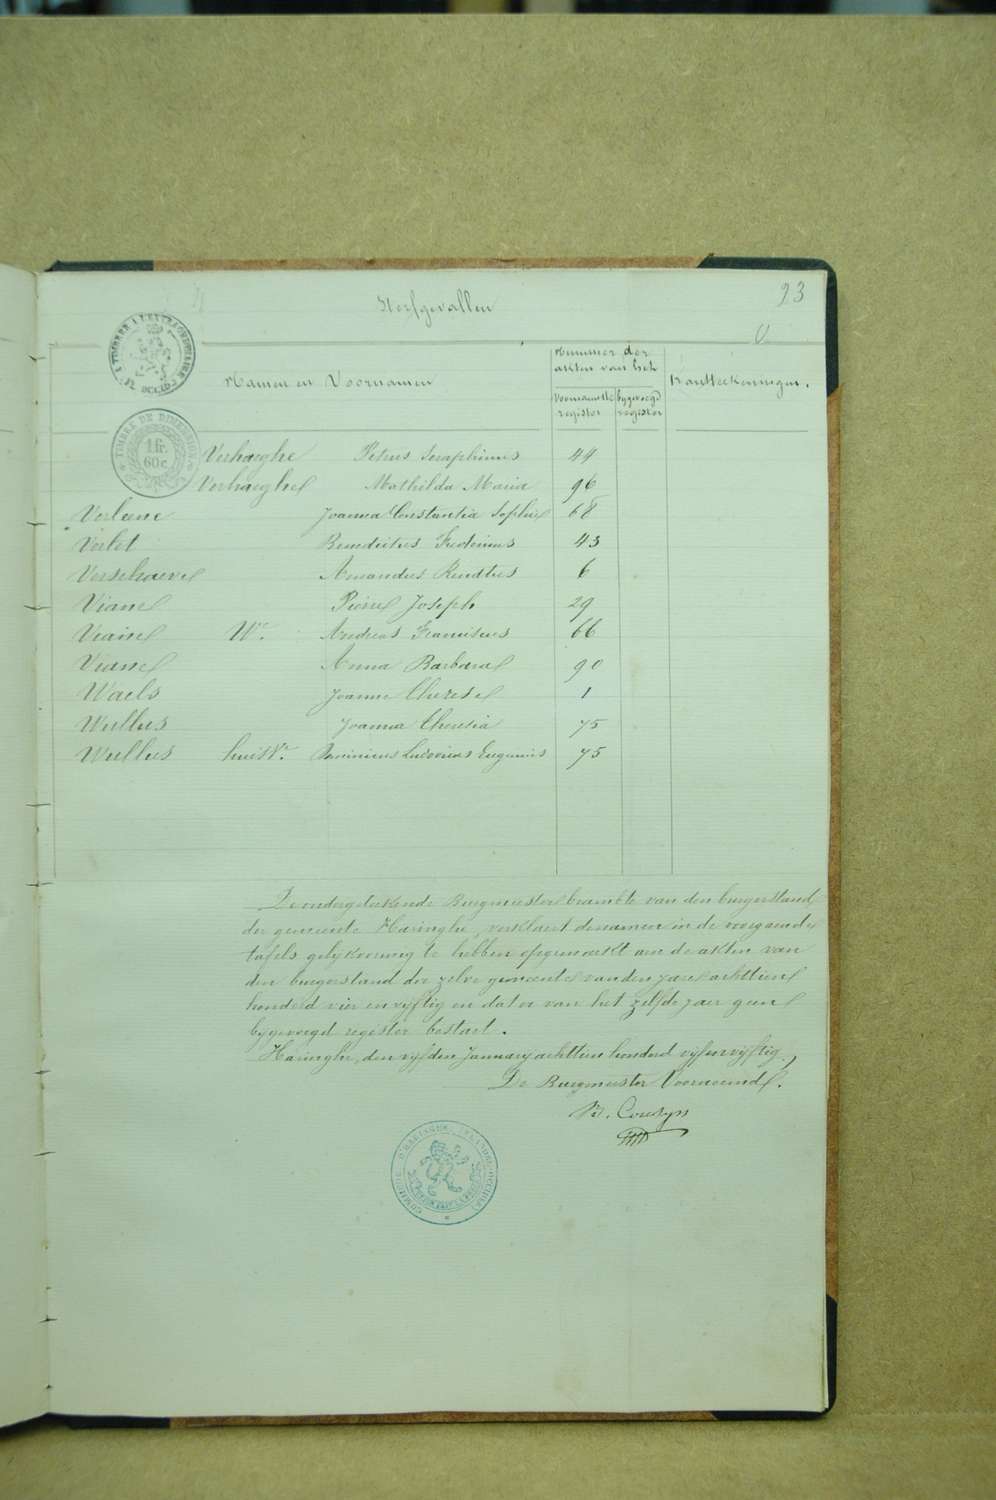 Sterfgevallen
93
V
Namen en Voornamen
Nummer der
akten van het
voornaemste register
bygevoegd register
Kantteekeningen.
TIMBRE A L'EXTRAORDINAIRE
TIMBRE DE DIMENSION
1 fr.
60 c.
Verhaeghe Petrus Seraphinus 44
Verhaeghe Mathilda Maria 96
Verleene Joanna Constantia Sophie 68
Verlet Benedictus Fredericus 43
Verschaeve Amandus Benditus 6
Viane Pierre Joseph 29
Viaine We. Andreas Franciscus 66
Viane Anna Barbara 90
Waels Joanne Therese 1
Wullus Joanna Theresia 75
Wullus huisVr. Ludovicus Eugenius 75
De ondergeteekende Burgmeester beambte van den burgerstand
der gemeente Haringhe, verklaert de namen in de voorgaende
tafels gelykvormig te hebben opgemaekt aen de akten van
den burgerstand der zelve gemeente van den jare achttien
honderd vier en vyftig en dat er van het zelfde jaer geene
bygevoegd register bestaet.
Haringhe, den vyfden January achttien honderd vyfenvyftig,
De Burgmeester Voornoemd.
COMMUNE D'HARINGHE